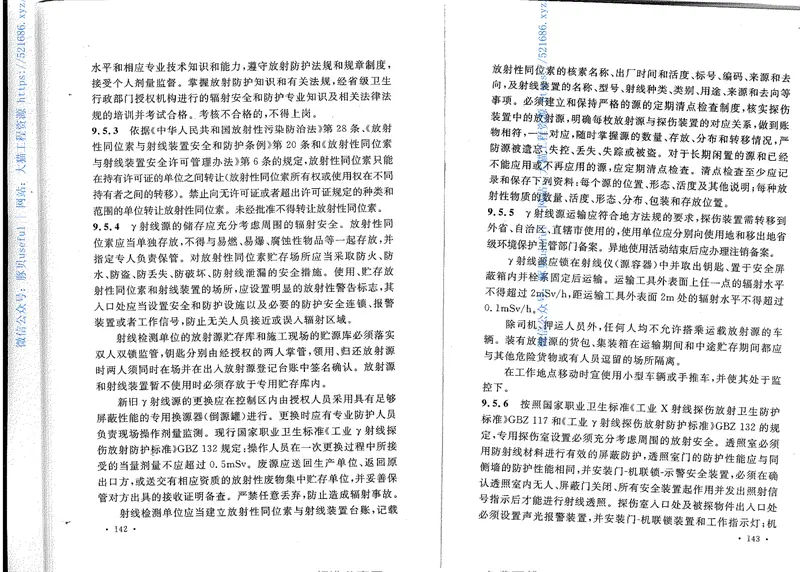 水平和相应专业技术知识和能力,遵守放射防护法规和规章制度,
接受个人剂量监督。掌握放射防护知识和有关法规,经省级卫生
行政部门授权机构进行的辐射安全和防护专业知识及相关法律法
规的培训并考试合格。考核不合格的,不得上岗。
9.5.3 依据《中华人民共和国放射性污染防治法》第 28 条、《放射
性同位素与射线装置安全和防护条例》第 20 条和《放射性同位素
与射线装置安全许可管理办法》第 6 条的规定,放射性同位素只能
在持有许可证的单位之间转让(放射性同位素所有权或使用权在不同
持有者之间的转移)。禁止向无许可证或者超出许可证规定的种类和
范围的单位转让放射性同位素。未经批准不得转让放射性同位素。
9.5.4 γ射线源的储存应充分考虑周围的辐射安全。放射性同
位素应当单独存放,不得与易燃、易爆、腐蚀性物品等一起存放,并
指定专人负责保管。对放射性同位素贮存场所应当采取防火、防
水、防盗、防丢失、防破坏、防射线泄漏的安全措施。使用、贮存放
射性同位素和射线装置的场所,应设置明显的放射性警告标志,其
入口处应当设置安全和防护设施以及必要的防护安全连锁、报警
装置或者工作信号,防止无关人员接近或误入辐射区域。
射线检测单位的放射源贮存库和施工现场的贮源库必须落实
双人双锁监管,钥匙分别由经授权的两人掌管,领用、归还放射源
时两人须同时在场并在出入放射源登记台账中签名确认。放射源
和射线装置暂不使用时必须存放于专用贮存库内。
新旧γ射线源的更换应在控制区内由授权人员采用具有足够
屏蔽性能的专用换源器(倒源罐)进行。更换时应有专业防护人员
负责现场操作剂量监测。现行国家职业卫生标准《工业γ射线探
伤放射防护标准》GBZ 132 规定:操作人员在一次更换过程中所接
受的当量剂量不应超过 0.5mSv。废源应送回生产单位、返回原
出口方,或送交有相应资质的放射性废物集中贮存单位,并妥善保
管对方出具的接收证明备查。严禁任意丢弃,防止造成辐射事故。
射线检测单位应当建立放射性同位素与射线装置台账,记载
· 142 ·
放射性同位素的核素名称、出厂时间和活度、标号、编码、来源和去
向,及射线装置的名称、型号、射线种类、类别、用途、来源和去向等
事项。必须建立和保持严格的源的定期清点检查制度,核实探伤
装置中的放射源,明确每枚放射源与探伤装置的对应关系,做到账
物相符,一一对应,随时掌握源的数量、存放、分布和转移情况,严
防源被遗忘、失控、丢失、失踪或被盗。对于长期闲置的源和已经
不能应用或不再应用的源,应定期清点检查。清点检查至少应记
录和保存下列资料:每个源的位置、形态、活度及其他说明;每种放
射性物质的数量、活度、形态、分布、包装和存放位置。
9.5.5 γ射线源运输应符合地方法规的要求,探伤装置需转移到
外省、自治区、直辖市使用的,使用单位应分别向使用地和移出地省
级环境保护主管部门备案。异地使用活动结束后应办理注销备案。
γ射线源应锁在射线仪(源容器)中并取出钥匙、置于安全屏
蔽箱内并栓系固定后运输。运输工具外表面上任一点的辐射水平
不得超过 2mSv/h,距运输工具外表面 2m 处的辐射水平不得超过
0.1mSv/h。
除司机、押运人员外,任何人均不允许搭乘运载放射源的车
辆。装有放射源的货包、集装箱在运输期间和中途贮存期间都应
与其他危险货物或有人员逗留的场所隔离。
在工作地点移动时宜使用小型车辆或手推车,并使其处于监
控下。
9.5.6 按照国家职业卫生标准《工业 X 射线探伤放射卫生防护
标准》GBZ 117 和《工业γ射线探伤放射防护标准》GBZ 132 的规
定,专用探伤室设置必须充分考虑周围的放射安全。透照室必须
用防射线材料进行有效的屏蔽防护,透照室门的防护性能应与同
侧墙的防护性能相同,并安装门-机联锁-示警安全装置,必须在确
认透照室内无人、屏蔽门关闭、所有安全装置起作用并发出照射信
号指示后才能进行射线透照。探伤室入口处及被探物件出入口处
必须设置声光报警装置,并安装门-机联锁装置和工作指示灯;机
· 143 ·
微信公众号:豚贝useful | 网站:大猫工程资源 https://521686.xyz